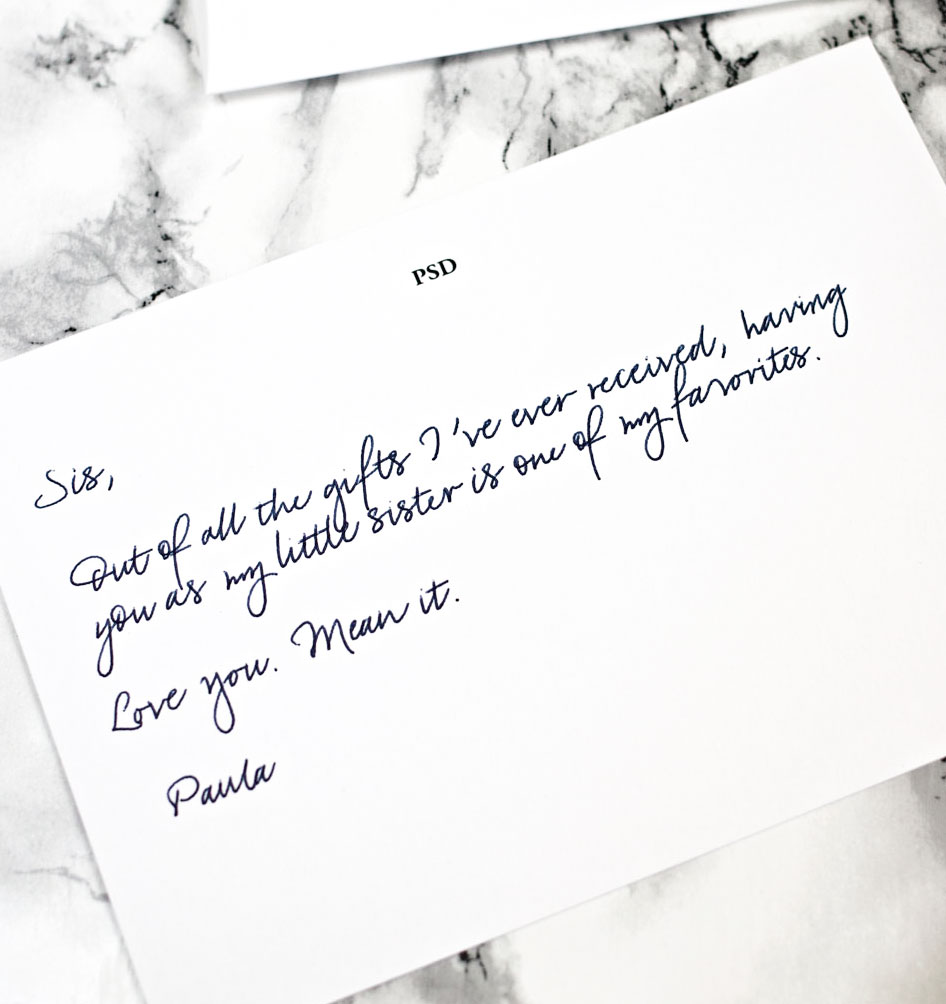 PSD
Sis,
Out of all the gifts I've ever received, having
you as my little sister is one of my favorites.
Love you. Mean it.
Paula